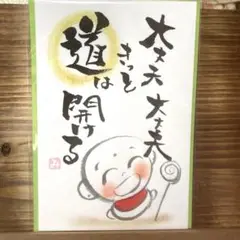 大丈夫大丈夫
きっと
道は
開ける